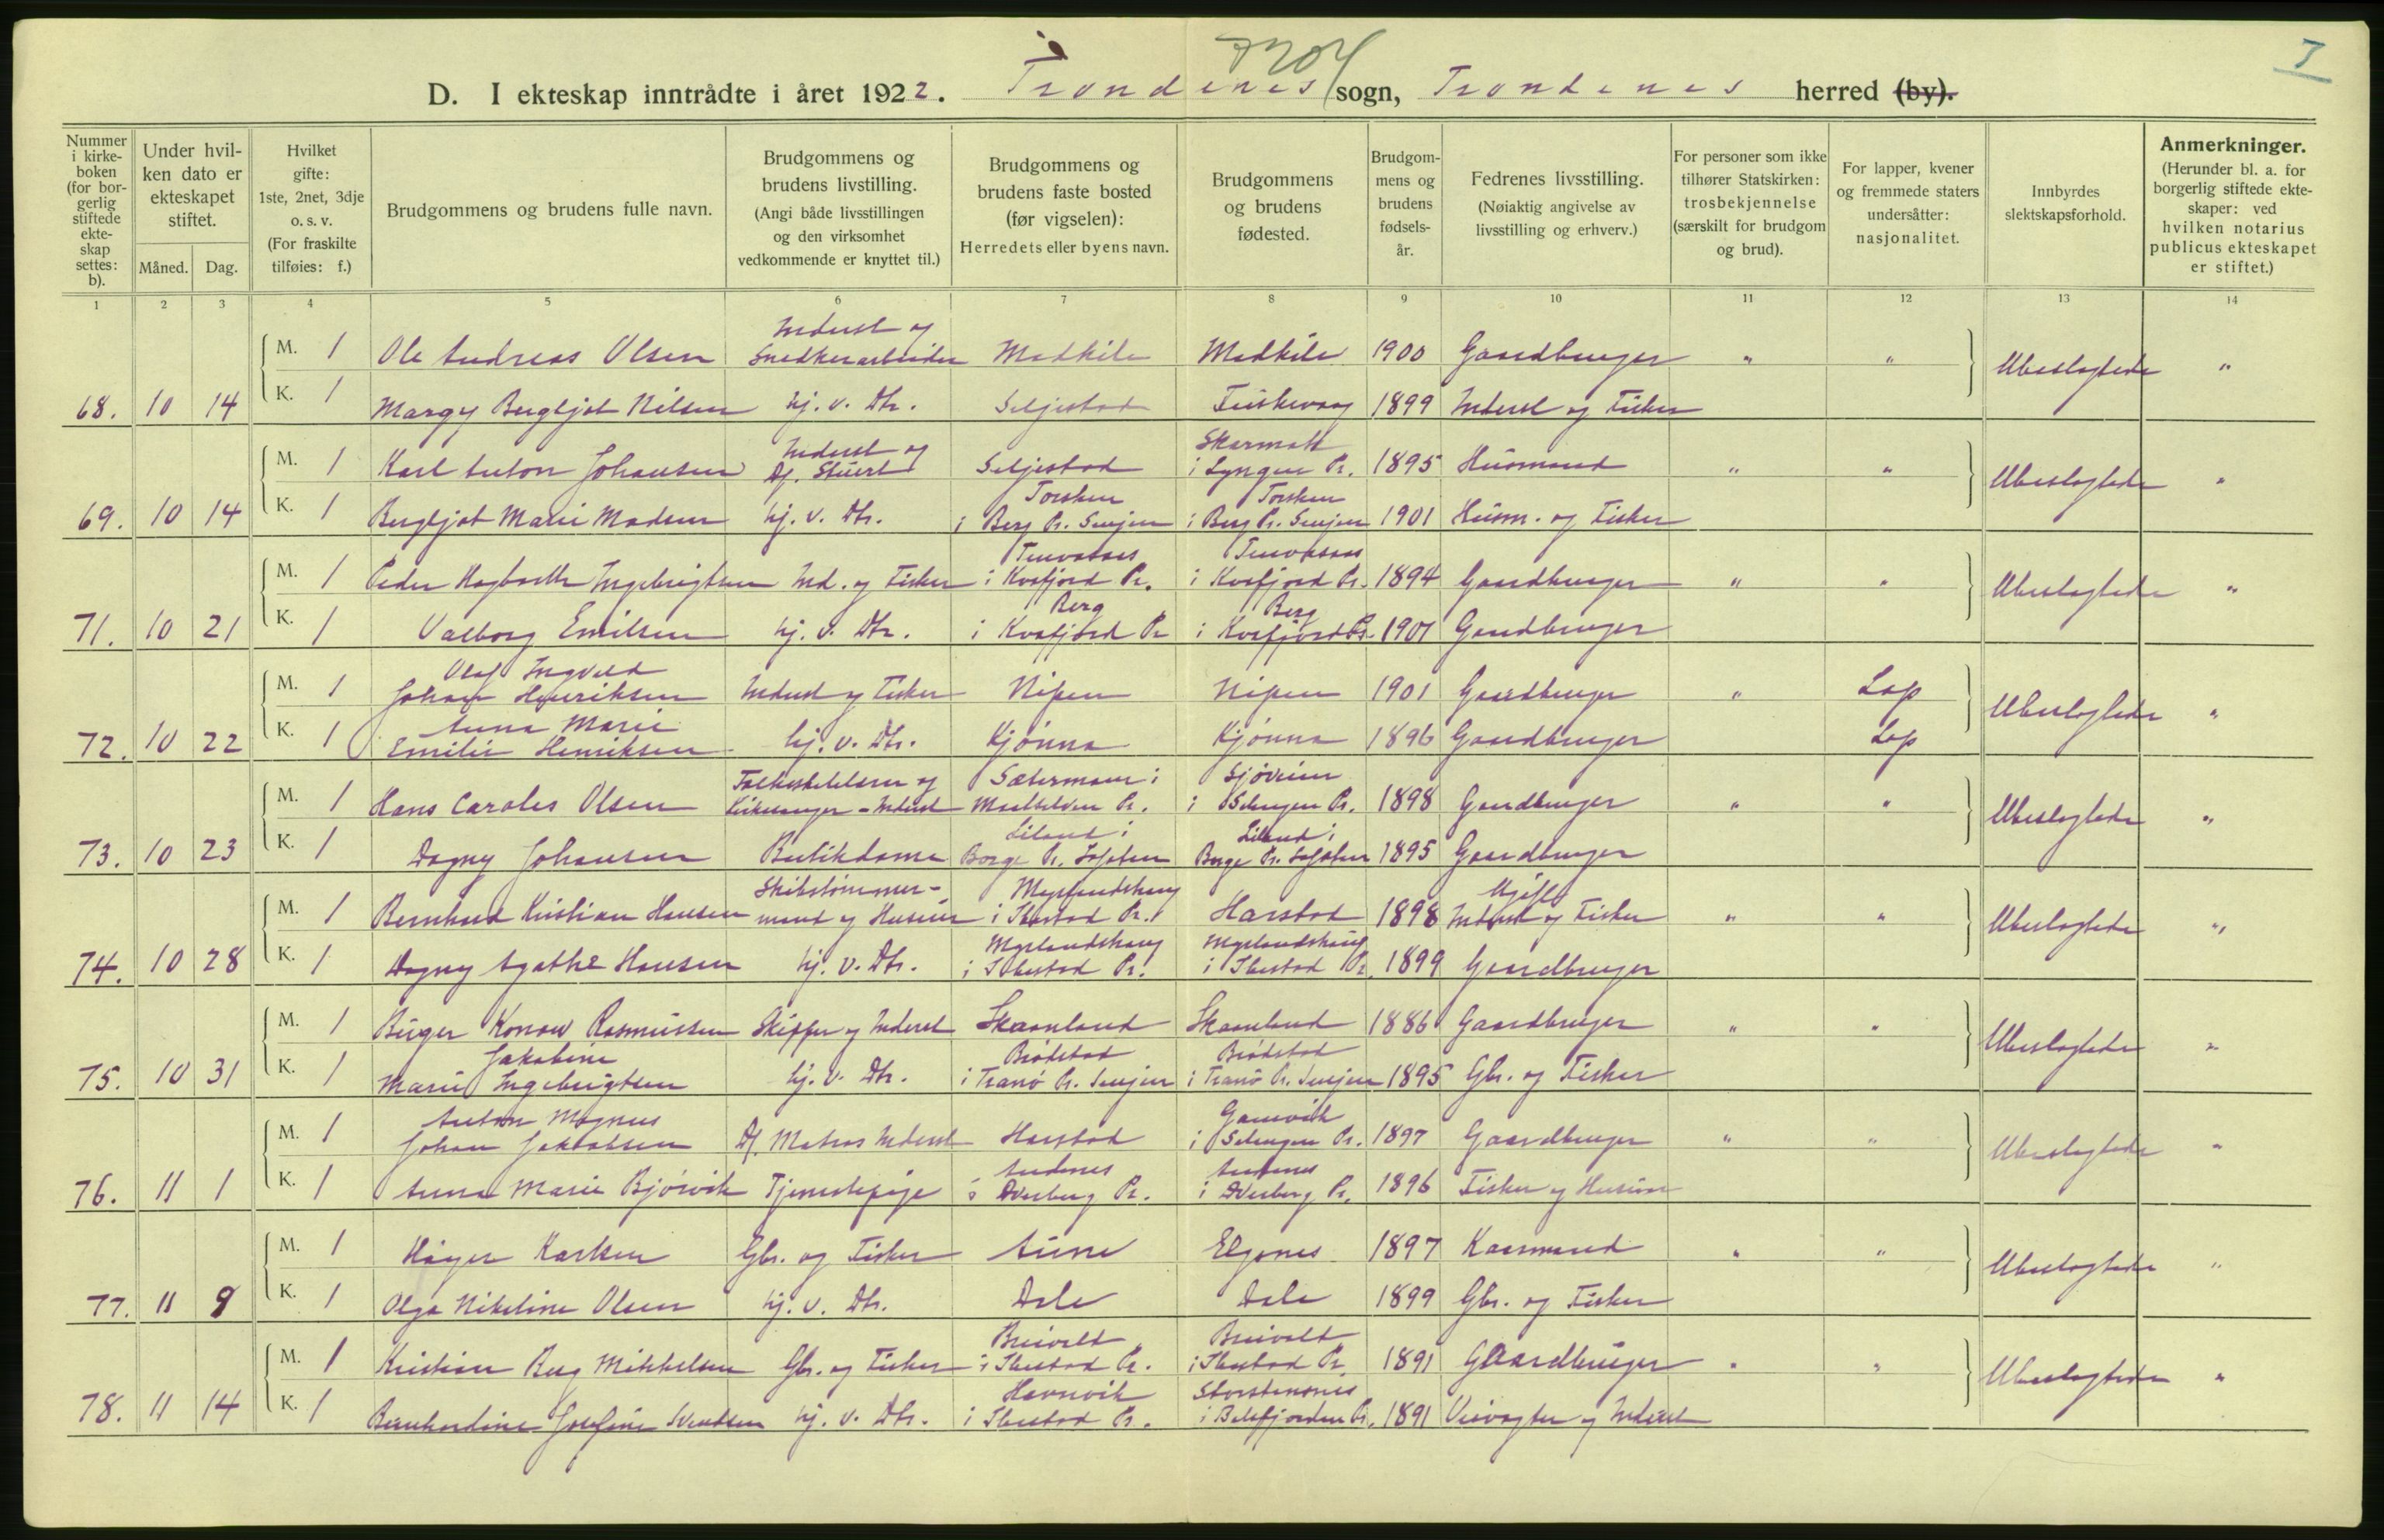 7204
7
D. I ekteskap inntrådte i året 1922. Trondenes sogn, Trondenes herred (by).
Nummer i kirkeboken (for borgerlig stiftede ekteskap settes: b).
Under hvilken dato er ekteskapet stiftet.
Måned. Dag.
Hvilket gifte: 1ste, 2net, 3dje o. s. v. (For fraskilte tilføies: f.)
Brudgommens og brudens fulle navn.
Brudgommens og brudens livstilling. (Angi både livsstillingen og den virksomhet vedkommende er knyttet til.)
Brudgommens og brudens faste bosted (før vigselen): Herredets eller byens navn.
Brudgommens og brudens fødested.
Brudgommens og brudens fødselsår.
Fedrenes livsstilling. (Nøiaktig angivelse av livsstilling og erhverv.)
For personer som ikke tilhører Statskirken: trosbekjennelse (særskilt for brudgom og brud).
For lapper, kvener og fremmede staters undersåtter: nasjonalitet.
Innbyrdes slektskapsforhold.
Anmerkninger. (Herunder bl. a. for borgerlig stiftede ekteskaper: ved hvilken notarius publicus ekteskapet er stiftet.)
1 2 3 4 5 6 7 8 9 10 11 12 13 14
M. 1 Ole Andreas Olsen Inderst og Snedkerarbeider Medkile Medkile 1900 Gaardbruger " " Ubeslegtede "
68. 10 14 K. 1 Margy Bergljot Nilsen hj. v. Dtr. Seljestad 1899 Inderst og Fisker
M. 1 Karl Anton Johansen Inderst og Df. Stuert Seljestad i Lyngen Pr. 1895 Husmand " " Ubeslegtede "
69. 10 14 K. 1 Bergljot Marie Madsen hj. v. Dtr. Torsken i Berg Pr. Senjen Torsken i Berg Pr. Senjen 1901 Husm. og Fisker
M. 1 Peder Hagbarth Ingebrigtsen Ind. og Fisker i Kvæfjord Pr. i Kvæfjord Pr. 1894 Gaardbruger " " Ubeslegtede "
71. 10 21 K. 1 Valborg Emilsen hj. v. Dtr. Berg i Kvæfjord Pr Berg i Kvæfjord Pr. 1901 Gaardbruger
M. 1 Olaf Ingvald Johan Henriksen Inderst og Fisker Nipen Nipen 1901 Gaardbruger " Lap Ubeslegtede "
72. 10 22 K. 1 Anna Marie Emilie Henriksen hj. v. Dtr. Kjønna Kjønna 1896 Gaardbruger Lap
M. 1 Hans Carolus Olsen Folkeskolelærer og Kirkesanger - Inderst Sætermoen i Maalselven Pr. Sjøveien i Salangen Pr. 1898 Gaardbruger " " Ubeslegtede "
73. 10 23 K. 1 Dagny Johansen Butikdame Liland i Borge Pr. Lofoten Liland i Borge Pr. Lofoten 1895 Gaardbruger
M. 1 Bernhard Kristian Hansen Skibstømmermand og Husmand i Ibestad Pr. Harstad 1898 Ugift Inderst og Fisker " " Ubeslegtede "
74. 10 28 K. 1 Dagny Agathe Hansen hj. v. Dtr. Myrlandshaug i Ibestad Pr. Myrlandshaug i Ibestad Pr. 1899 Gaardbruger
M. 1 Birger Konow Rasmussen Skipper og Inderst Skaanland Skaanland 1886 Gaardbruger " " Ubeslegtede "
75. 10 31 K. 1 Jakobine Marie Ingebrigtsen hj. v. Dtr. Brødstad i Tranø Pr. Senjen Brødstad i Tranø Pr. Senjen 1895 Gbr. og Fisker
M. 1 Anton Magnus Johan Jakobsen Df. Matros Inderst Harstad i Salangen Pr. 1897 Gaardbruger " " Ubeslegtede "
76. 11 1 K. 1 Anna Marie Bjørvik Tjenestepige Andenes i Dverberg Pr. Andenes i Dverberg Pr. 1896 Fisker og Husmand
M. 1 Håger Karlsen Gbr. og Fisker Aune Elgenes 1897 Kaarmand " " Ubeslegtede "
77. 11 9 K. 1 Olga Nikoline Olsen hj. v. Dtr. Dale Dale 1899 Gbr. og Fisker
M. 1 Kristian Berg Mikkelsen Gbr. og Fisker Breivold i Ibestad Pr. Breivold i Ibestad Pr. 1891 Gaardbruger " " Ubeslegtede "
78. 11 14 K. 1 Bernhardine Josefine Svendsen hj. v. Dtr. Havnvik i Ibestad Pr. Storstennes i Balsfjorden Pr. 1891 Veivogter og Inderst